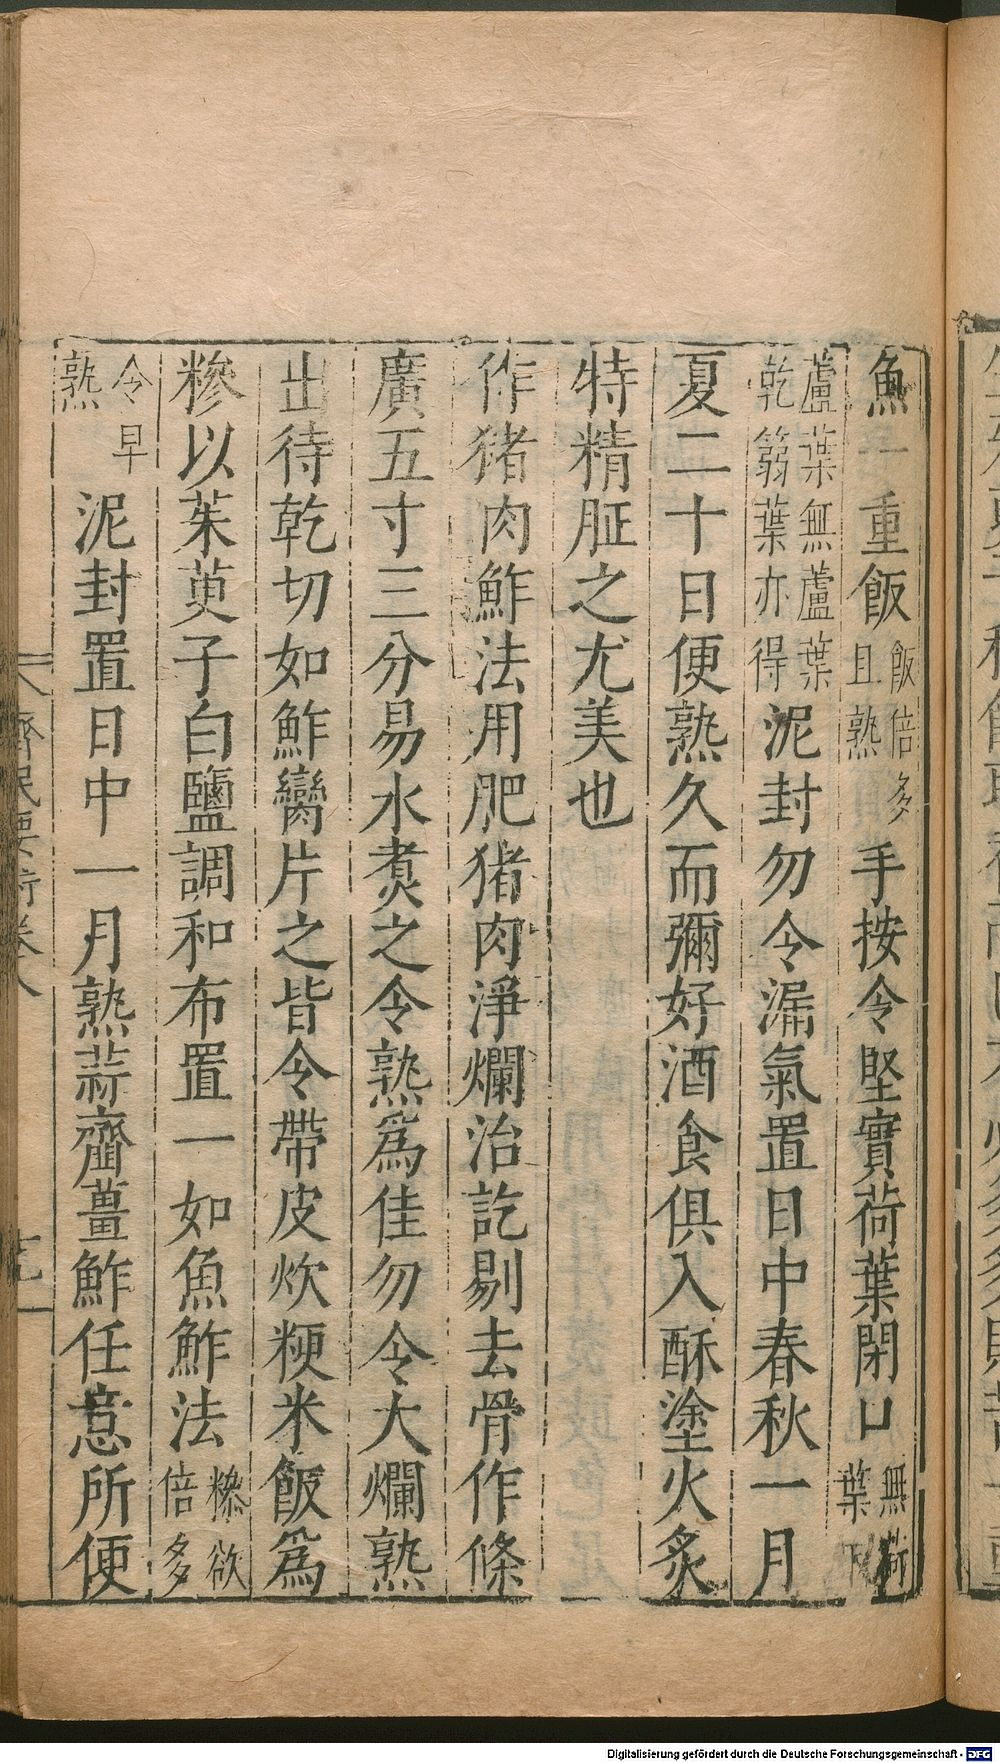 魚一重飯飯倍多且熟手按令堅實荷葉閉口無荷葉
蘆葉無蘆葉乾篛葉亦得泥封勿令漏氣置日中春秋一月
夏二十日便熟久而彌好酒食俱入酥塗火炙
特精脠之尤美也
作猪肉鮓法用肥猪肉淨爛治訖剔去骨作條
廣五寸三分易水煑之令熟爲佳勿令大爛熟
出待乾切如鮓臠片之皆令帶皮炊粳米飯爲
糝以茱萸子白鹽調和布置一如魚鮓法糝欲倍多
令早熟泥封置日中一月熟蒜齏薑鮓任意所便
齊民要術卷八
Digitalisierung gefördert durch die Deutsche Forschungsgemeinschaft - DFG